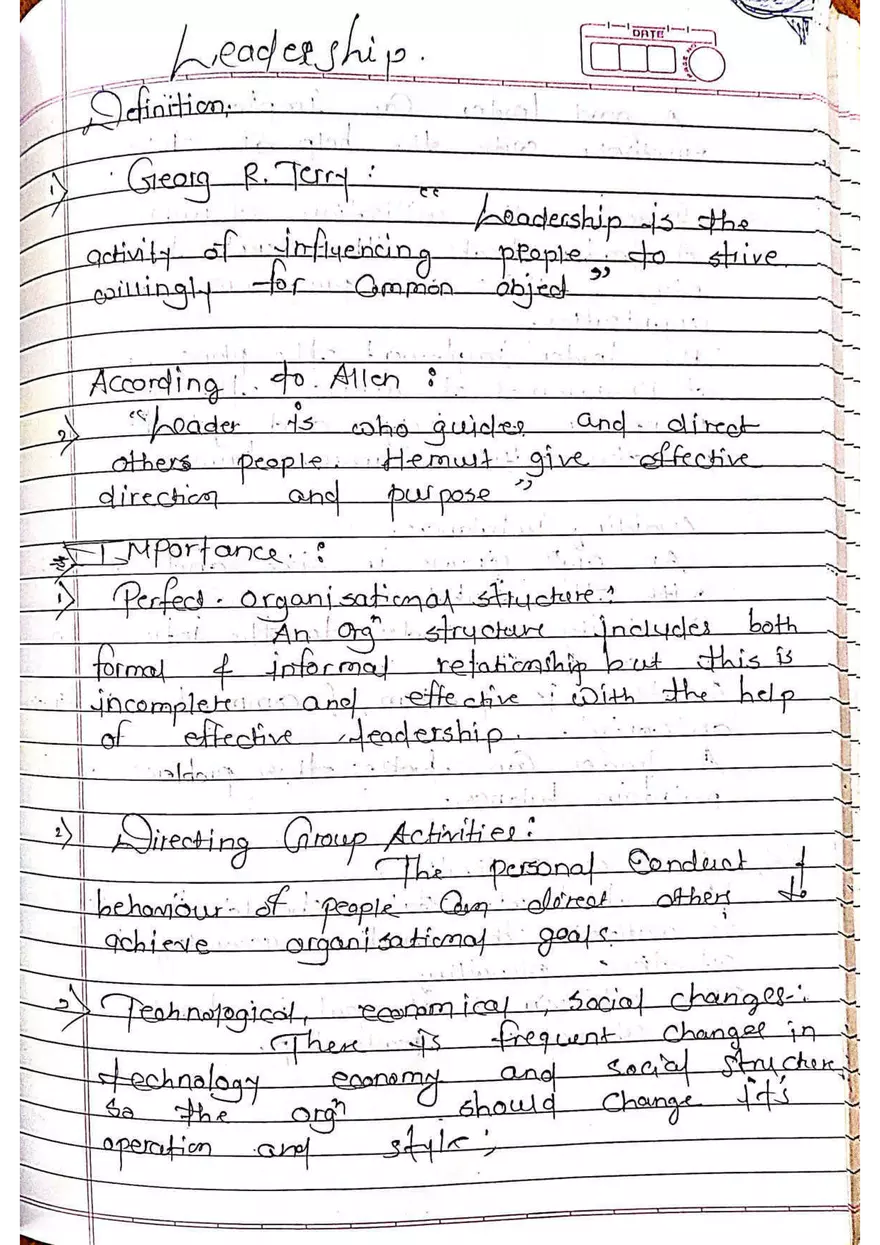 Leadership.
DATE
PAGE NO
Definition:
1) Georg R. Terry :
"Leadership is the
activity of influencing people to strive
willingly for Common object"
According to Allen :
2) "Leader is who guides and direct
others people. He must give effective
direction and purpose"
Importance :
1) Perfect organisational structure :
An Orgn structure includes both
formal & informal relationship but this is
incomplete and effective with the help
of effective leadership.
2) Directing Group Activities :
The personal Conduct &
behaviour of people Can direct others to
achieve organisational goals.
3) Technological, economical, social changes :
There is frequent changes in
technology economy and social structure
so the orgn should change it's
operation and style;